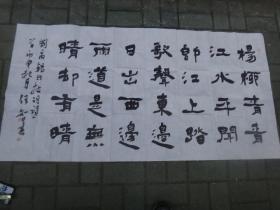 楊柳青青
江水平聞
郎江上踏
歌聲東邊
日出西邊
雨道是無
晴却有晴
劉禹錫竹枝詞